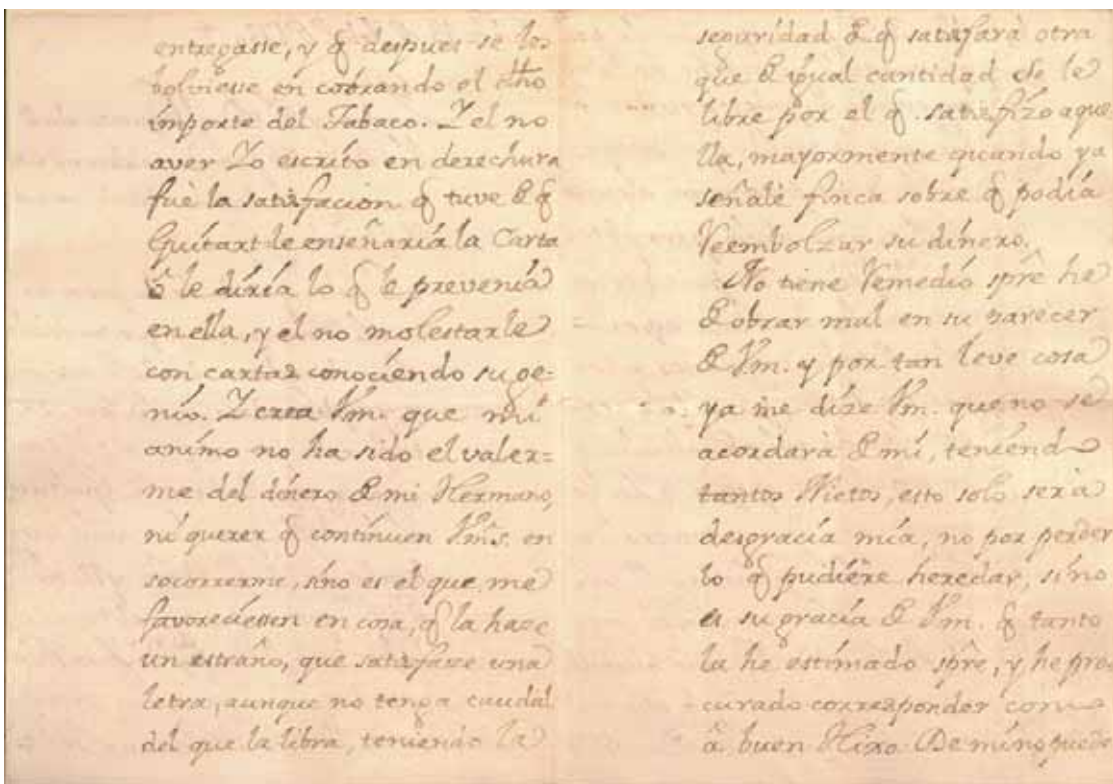 entregasse, y q̃ despues se los
bolviesse en cobrando el dho
importe del Tabaco. Y el no
aver Yo escrito en derechura
fuè la satisfacion q̃ tuve d q̃
Guitart le enseñaria la Carta
ò le diria lo q̃ le prevenia
en ella, y el no molestarle
con cartas conociendo su ge=
nio. Y crea Vm. que mi
animo no ha sido el valer=
me del dinero d mi Hermano,
ni querer q̃ continuen Vms. en
socorrerme, sino es el que me
favoreciessen en cosa, q̃ la haze
un estraño, que satisfaze una
letra, aunque no tenga caudal
del que la libra, teniendo la
seguridad d q̃ satisfarà otra
que d ygual cantidad se le
libre por el q̃ satisfizo aque
lla, mayormente quando ya
señalè finca sobre q̃ podia
Reembolzar su dinero.
No tiene Remedio spre he
d obrar mal en su parecer
d Vm. y por tan leve cosa
ya me dize Vm. que no se
acordarà d mi, teniend
tantos Nietos, esto solo serà
desgracia mia, no por perder
lo q̃ pudiere heredar, sino
es su gracia d Vm. q̃ tanto
la he estimado spre, y he pro
curado corresponder como
à buen Hixo. De mi no puede